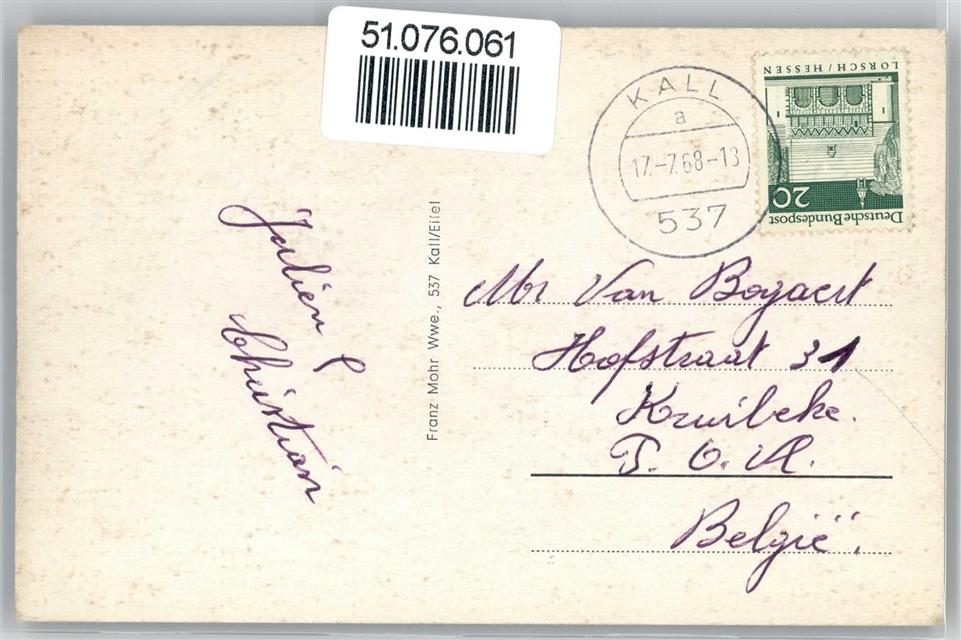 51.076.061
KALL
a
17.-7.68-13
537
LORSCH/HESSEN
20
Deutsche Bundespost
Julien &
Christian
Franz Mohr Wwe., 537 Kall/Eifel
Mr Van Bogaert
Hofstraat 31
Kruibeke.
België.